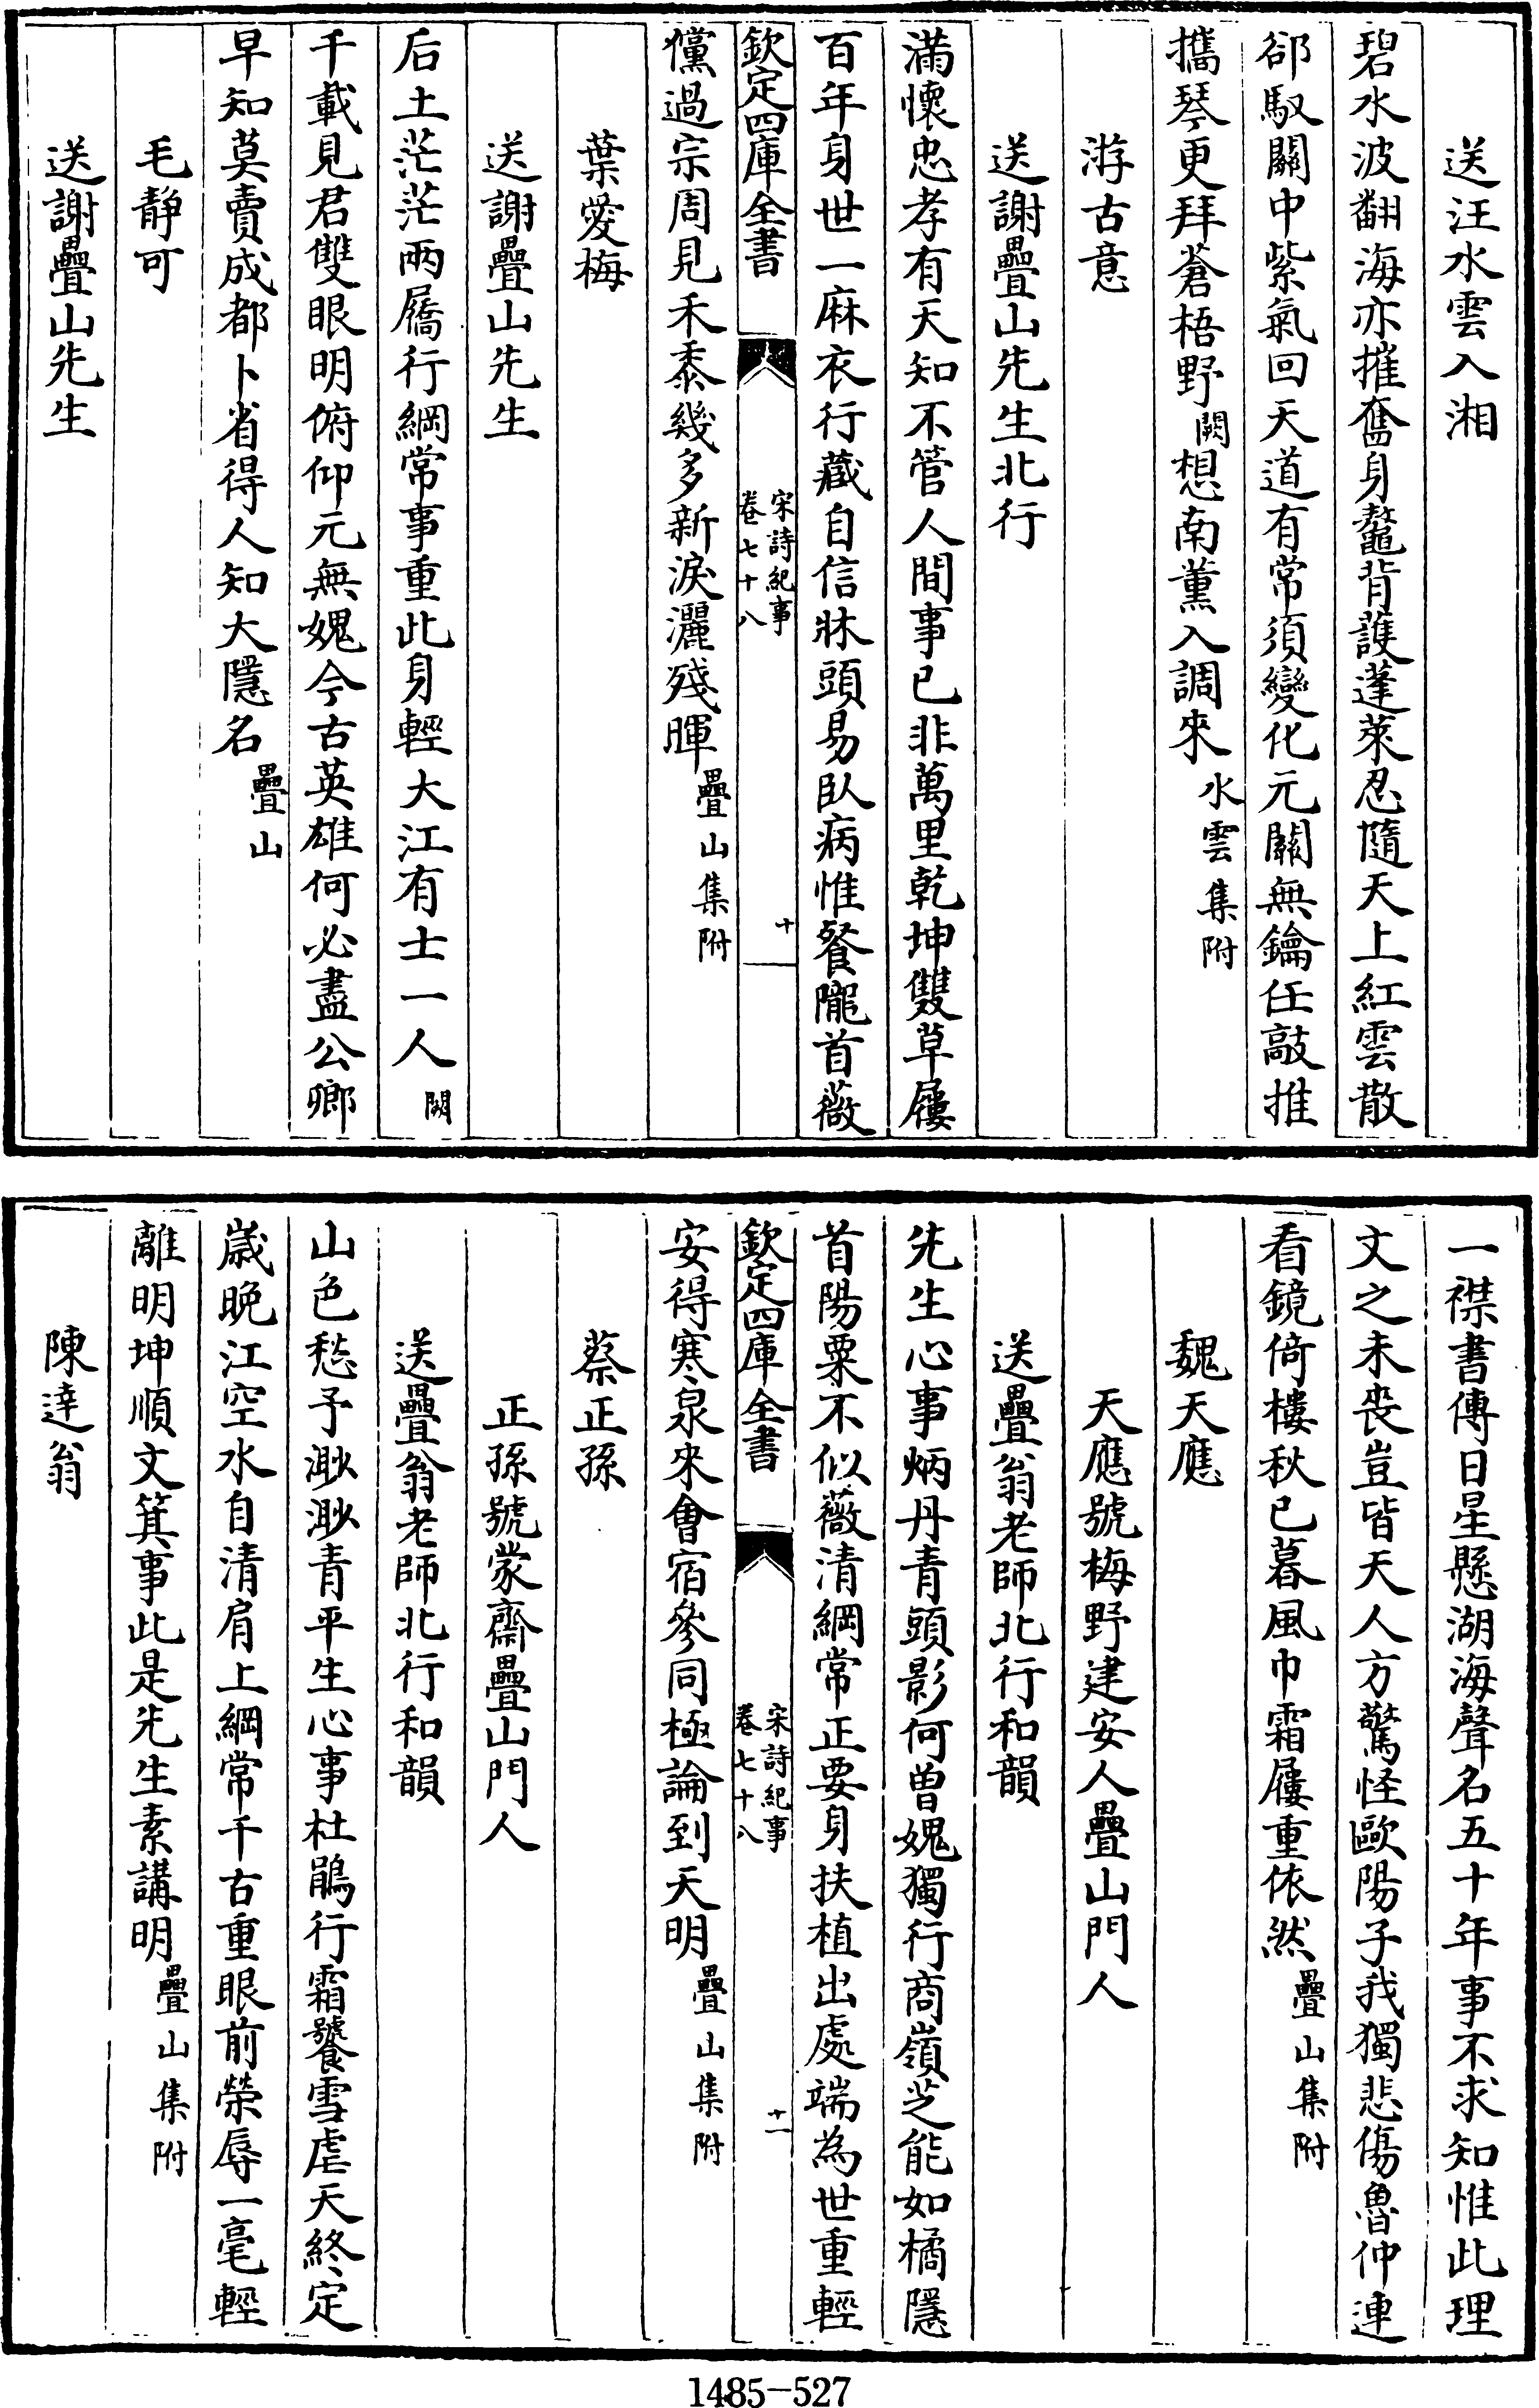 送汪水雲入湘
碧水波翻海亦摧奮身鼇背護蓬萊忍隨天上紅雲散
郤馭關中紫氣回天道有常須變化元關無鑰任敲推
攜琴更拜蒼梧野闕想南薰入調來水雲集附
游古意
送謝疊山先生北行
滿懷忠孝有天知不管人間事已非萬里乾坤雙草屨
百年身世一麻衣行藏自信牀頭易臥病惟餐隴首薇
欽定四庫全書
宋詩紀事
卷七十八
十
儻過宗周見禾黍幾多新淚灑殘暉疊山集附
葉愛梅
送謝疊山先生
后土茫茫兩屩行綱常事重此身輕大江有士一人闕
千載見君雙眼明俯仰元無媿今古英雄何必盡公卿
早知莫賣成都卜省得人知大隱名疊山
毛靜可
送謝疊山先生
一襟書傳日星懸湖海聲名五十年事不求知惟此理
文之未喪豈皆天人方驚怪歐陽子我獨悲傷魯仲連
看鏡倚樓秋已暮風巾霜屨重依然疊山集附
魏天應
天應號梅野建安人疊山門人
送疊翁老師北行和韻
先生心事炳丹青頭影何曾媿獨行商嶺芝能如橘隱
首陽粟不似薇清綱常正要身扶植出處端為世重輕
欽定四庫全書
宋詩紀事
卷七十八
十一
安得寒泉來會宿參同極論到天明疊山集附
蔡正孫
正孫號蒙齋疊山門人
送疊翁老師北行和韻
山色愁予渺渺青平生心事杜鵑行霜饕雪虐天終定
歲晚江空水自清肩上綱常千古重眼前榮辱一毫輕
離明坤順文箕事此是先生素講明疊山集附
陳達翁
1485-527